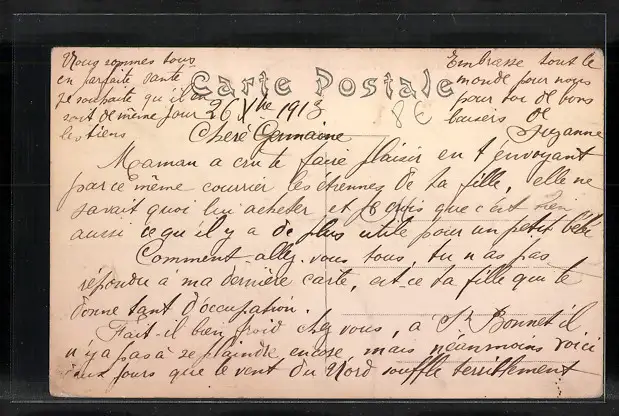 Carte Postale
8€
26 Xbre 1913
Chère Germaine
Maman a cru te faire plaisir en t'envoyant
par ce même courrier les étrennes de ta fille, elle ne
savait quoi lui acheter et je crois que c'est bien
aussi ce qu'il y a de plus utile pour un petit bébé.
Comment allez-vous tous, tu n'as pas
répondu à ma dernière carte, est-ce ta fille que te
donne tant d'occupation.
Fait-il bien froid chez vous, à St Bonnet il
n'y a pas à se plaindre encore, mais néanmoins voici
deux jours que le vent du Nord souffle terriblement
Nous sommes tous
en parfaite santé
je souhaite qu'il en
soit de même pour
les tiens
Embrasse tout le
monde pour nous
pour toi de bons
baisers de
Suzanne